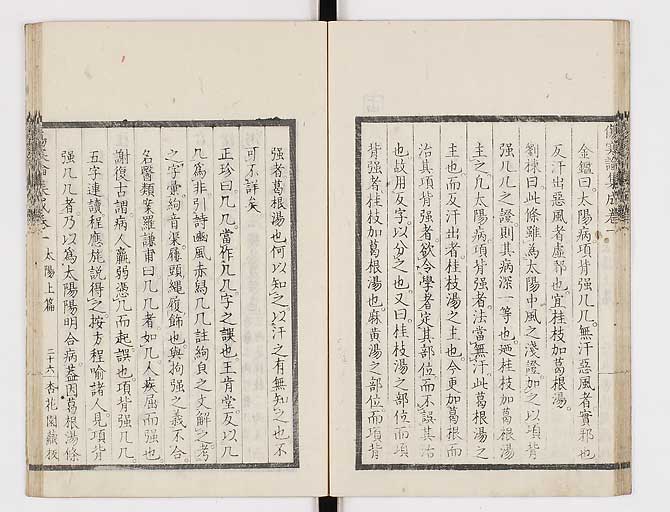 傷寒論集成卷一
金鑑曰。太陽病項背強几几。無汗惡風者實邪也
反汗出惡風者。虛邪也。宜桂枝加葛根湯。
劉棟曰。此條雖爲太陽中風之淺證加之以項背
強几几之證則其病深一等也。廼桂枝加葛根湯
主之。凡太陽病項背強者。法當無汗。此葛根湯之
主也。而反汗出者。桂枝湯之主也。今更加葛根而
治其項背強者。欲令學者定其部位。而不誤其治
也。故用反字。以分之也。又曰。桂枝湯之部位。而項
背強者。桂枝加葛根湯也。麻黃湯之部位。而項背
強者葛根湯也。何以知之。以汗之有無知之也。不
可不詳矣
正珍曰。几几當作几几字之誤也。王肯堂反以几
几爲非。引詩豳風赤舄几几註絇貌之文解之。考
之字彙。絇音渠。履頭。繩履飾也。與拘強之義不合。
名醫類案羅謙甫曰。几几者如几人疾屈而強也
謝復古謂。病人羸弱。憑几而起。誤也。項背強几几。
五字連讀。程應旄説得之。按方程喻諸人。見項背
強几几者。乃以爲太陽陽明合病。蓋因葛根湯條
太陽上篇
二十六
杏花園藏板